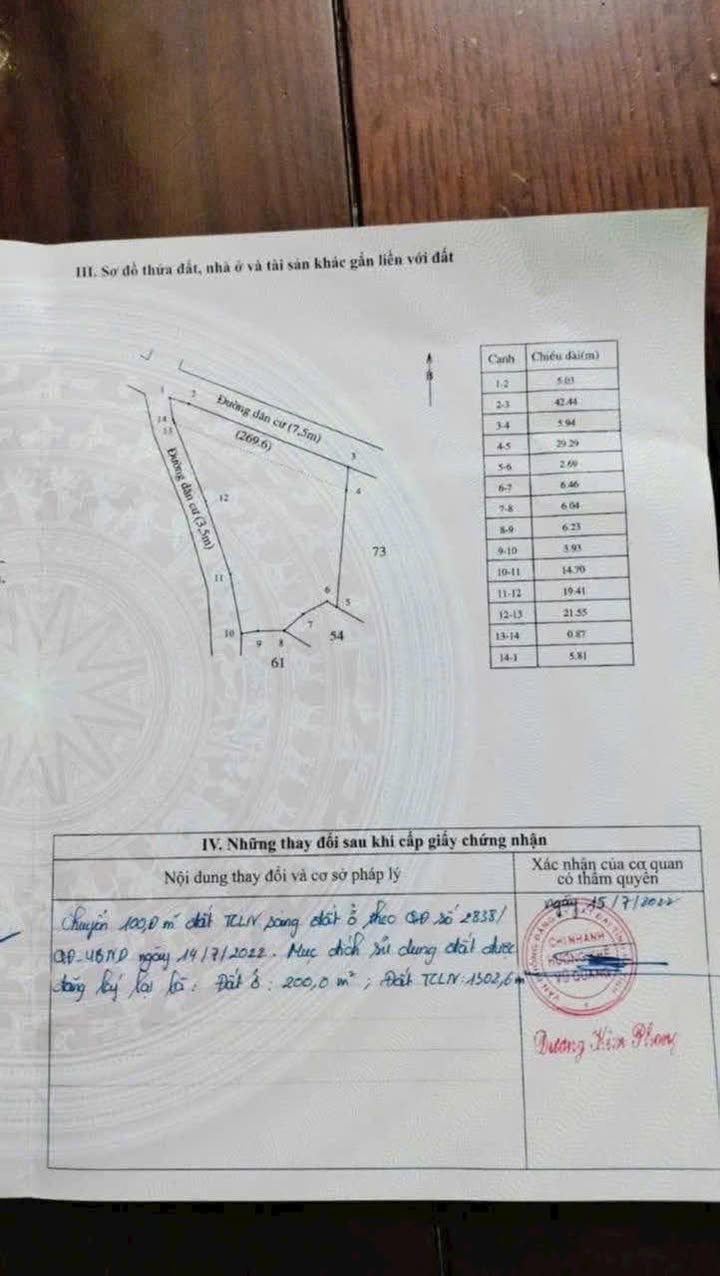 III. Sơ đồ thửa đất, nhà ở và tài sản khác gắn liền với đất
B
Đường dân cư (7,5m)
(269.6)
Đường dân cư (3,5m)
1
2
3
4
5
6
7
8
9
10
11
12
13
14
73
54
61
Cạnh Chiều dài(m)
1-2 5.03
2-3 42.44
3-4 5.94
4-5 29.29
5-6 2.69
6-7 6.46
7-8 6.04
8-9 6.23
9-10 3.93
10-11 14.70
11-12 19.41
12-13 21.55
13-14 0.87
14-1 5.81
IV. Những thay đổi sau khi cấp giấy chứng nhận
Nội dung thay đổi và cơ sở pháp lý
Xác nhận của cơ quan
có thẩm quyền
Chuyển 100,0 m² đất TCLN sang đất ở theo QĐ số 2838/
QĐ-UBND ngày 14/7/2022. Mục đích sử dụng đất được
đăng ký lại là: Đất ở: 200,0 m²; Đất TCLN: 1502,6 m²
ngày 15/7/2022
CHI NHÁNH
VŨ QUANG
Dương Kim Phong